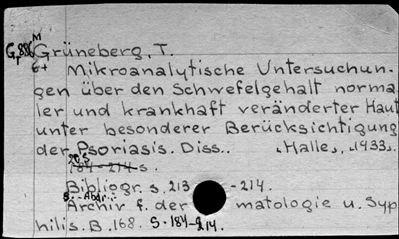 M
Gr886 Grüneberg, T.
6+ Mikroanalytische Untersuchun-
gen über den Schwefelgehalt norma
ler und krankhaft veränderter Haut
unter besonderer Berücksichtigung
der Psoriasis. Diss.. Halle, 1933.
20 S
184-214 s.
Bibliogr. s. 213 -214.
S.-Abdr.:
Archiv f. der matologie u. Syp
hilis. B. 168. S. 184-214.